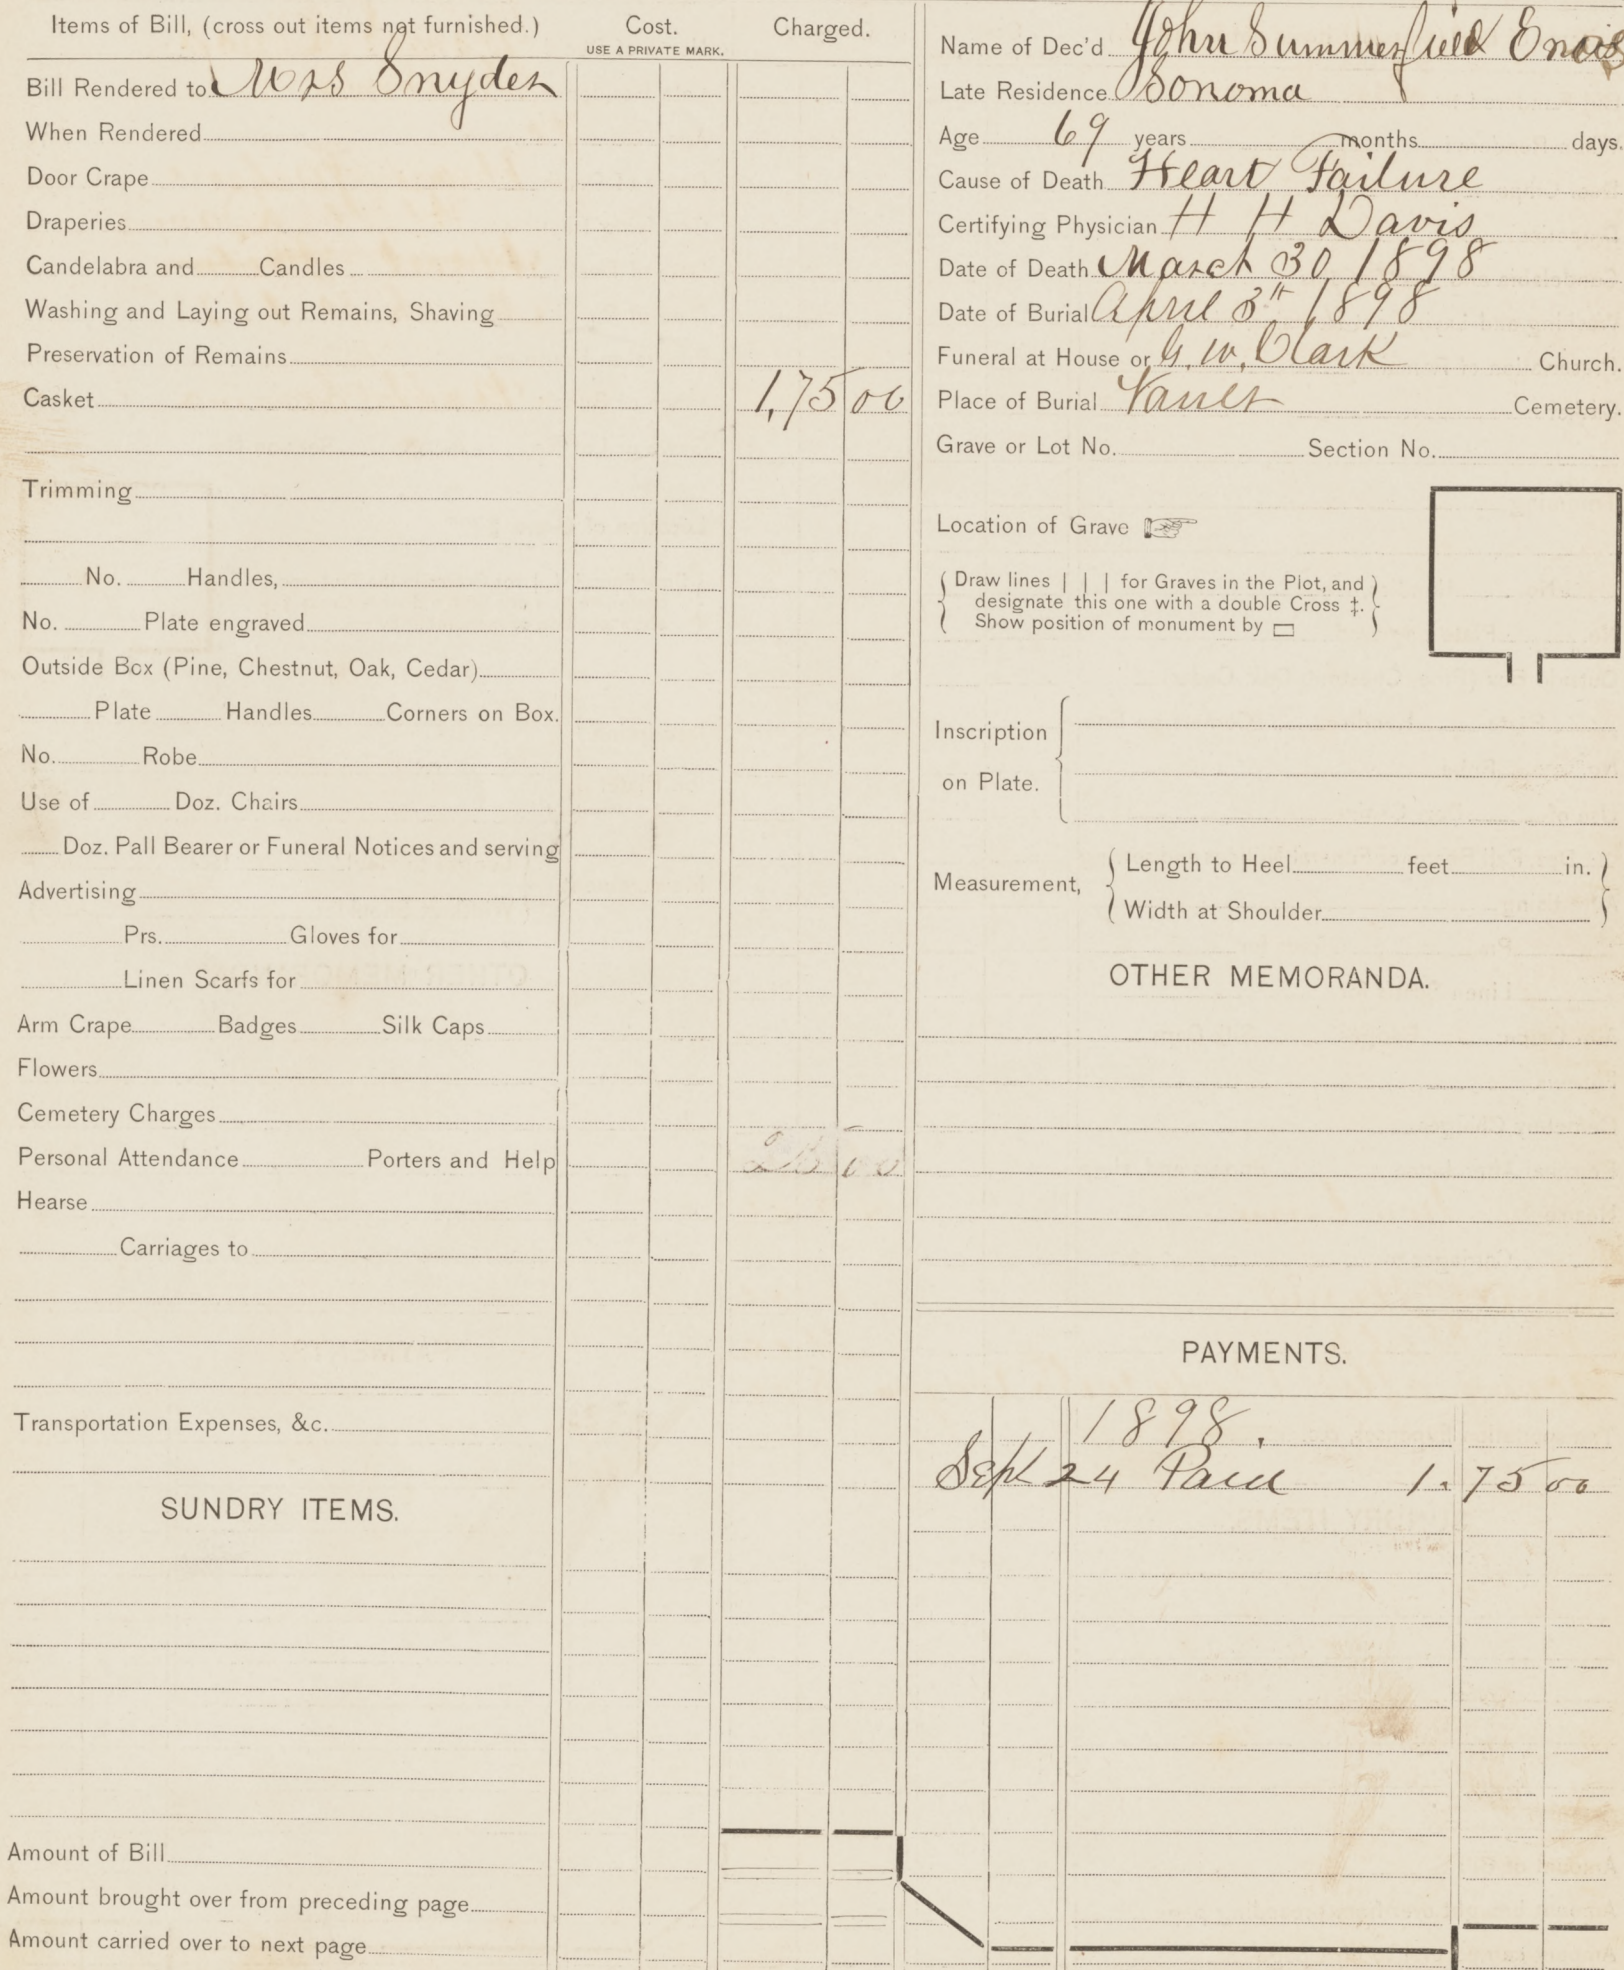 Items of Bill, (cross out items not furnished.) Cost. Charged.
USE A PRIVATE MARK.
Bill Rendered to Mrs Snyder
When Rendered
Door Crape
Draperies
Candelabra and Candles
Washing and Laying out Remains, Shaving
Preservation of Remains
Casket 1,75 00
Trimming
No. Handles,
No. Plate engraved
Outside Box (Pine, Chestnut, Oak, Cedar)
Plate Handles Corners on Box.
No. Robe
Use of Doz. Chairs
Doz. Pall Bearer or Funeral Notices and serving
Advertising
Prs. Gloves for
Linen Scarfs for
Arm Crape Badges Silk Caps
Flowers
Cemetery Charges
Personal Attendance Porters and Help
Hearse
Carriages to
Transportation Expenses, &c.
SUNDRY ITEMS.
Amount of Bill
Amount brought over from preceding page
Amount carried over to next page
Name of Dec'd John Summerfield
Late Residence Sonoma
Age 69 years months days.
Cause of Death Heart Failure
Certifying Physician H H Davis
Date of Death March 30 1898
Date of Burial April 3th 1898
Funeral at House or G. W. Clark Church.
Place of Burial Vault Cemetery.
Grave or Lot No. Section No.
Location of Grave ☞
Draw lines | | | for Graves in the Plot, and
designate this one with a double Cross ‡.
Show position of monument by ▭
Inscription
on Plate.
Measurement,
Length to Heel feet in.
Width at Shoulder
OTHER MEMORANDA.
PAYMENTS.
1898.
Sept 24 Paid 1.75 00